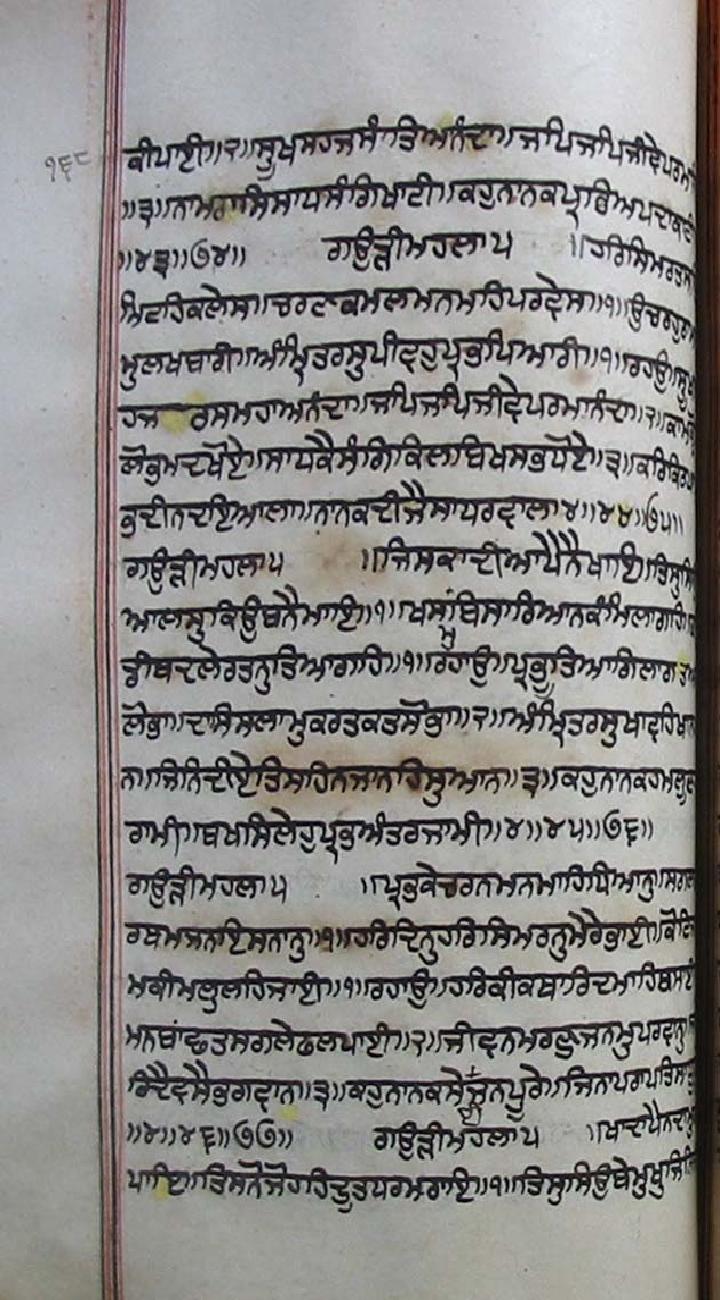 ੧੬੮
ਕੀਪਾਈ॥੨॥ਸੂਖਸਹਜਸਾਂਤਿਅਨੰਦਾ॥ਜਪਿਜਪਿਜੀਵੇਪਰਮਾ
॥੩॥ਨਾਮਰਾਸਿਸਾਧਸੰਗਿਖਾਟੀ॥ਕਹੁਨਾਨਕਪ੍ਰਭਿਅਪਦਾਕਾਟੀ
॥੪੩॥੭੪॥ ਗਉੜੀਮਹਲਾ੫ ॥ਹਰਿਸਿਮਰਤਸ
ਮਿਟਹਿਕਲੇਸ॥ਚਰਣਕਮਲਮਨਮਹਿਪਰਵੇਸ॥੧॥ਉਚਰਹੁਰਾ
ਮੁਲਖਬਾਰੀ॥ਅੰਮ੍ਰਿਤਰਸੁਪੀਵਹੁਪ੍ਰਭਪਿਆਰੀ॥੧॥ਰਹਾਉ॥ਸੂਖ
ਹਜ ਰਸਮਹਾਅਨੰਦਾ॥ਜਪਿਜਪਿਜੀਵੇਪਰਮਾਨੰਦਾ॥੨॥ਕਾਮਕ੍ਰੋ
ਲੋਭਮਦਖੋਏ॥ਸਾਧਕੈਸੰਗਿਕਿਲਬਿਖਸਭਧੋਏ॥੩॥ਕਰਿਕਿਰਪਾ
ਭਦੀਨਦਇਆਲਾ॥ਨਾਨਕਦੀਜੈਸਾਧਰਵਾਲਾ੪॥੪੪॥੭੫॥
ਗਉੜੀਮਹਲਾ੫ ॥ਜਿਸਕਾਦੀਆਪੈਨੈਖਾਇ॥ਤਿਸੁਸਿ
ਆਲਸੁਕਿਉਬਨੈਮਾਇ॥੧॥ਖਸਮੁਬਿਸਾਰਿਆਨਕੰਮਿਲਾਗਹਿ
ਡੀਬਦਲੇਰਤਨੁਤਿਆਗਹਿ॥੧॥ਰਹਾਉ॥ਪ੍ਰਭੂਤਿਆਗਿਲਾਗਤਅ
ਲੋਭਾ॥ਦਾਸਿਸਲਾਮੁਕਰਤਕਤਸੋਭਾ॥੨॥ਅੰਮ੍ਰਿਤਰਸੁਖਾਵਹਿਖਾਨ
ਨਾ॥ਜਿਨਿਦੀਏਤਿਸਹਿਨਜਾਨਹਿਸੁਆਨ॥੩॥ਕਹੁਨਾਨਕਹਮਲੂਣ
ਰਾਮੀ॥ਬਖਸਿਲੇਹੁਪ੍ਰਭਅੰਤਰਜਾਮੀ॥੪॥੪੫॥੭੬॥
ਗਉੜੀਮਹਲਾ੫ ॥ਪ੍ਰਭਕੇਚਰਨਮਨਮਾਹਿਧਿਆਨੁ॥ਸਗਲ
ਰਥਮਜਨਇਸਨਾਨੁ॥੧॥ਹਰਿਦਿਨੁਹਰਿਸਿਮਰਨੁਮੇਰੇਭਾਈ॥ਕੋਟਿਜ
ਮਕੀਮਲੁਲਹਿਜਾਈ॥੧॥ਰਹਾਉ॥ਹਰਿਕੀਕਥਾਰਿਦਮਾਹਿਬਸਾਈ
ਮਨਬਾਂਛਤਸਗਲੇਫਲਪਾਈ॥੨॥ਜੀਵਨਮਰਣੁਜਨਮੁਪਰਵਾਨੁ॥ਜਾ
ਰਿਦੈਵਸੈਭਗਵਾਨ॥੩॥ਕਹੁਨਾਨਕਸੇਈਜਨਪੂਰੇ॥ਜਿਨਾਪਰਾਪਤਿਸਾ
॥੪॥੪੬॥੭੭॥ ਗਉੜੀਮਹਲਾ੫ ॥ਖਾਦਾਪੈਨਦਾਮੂ
ਪਾਇ॥ਤਿਸਨੋਜੋਹਹਿਦੂਤਧਰਮਰਾਇ॥੧॥ਤਿਸੁਸਿਉਬੇਮੁਖੁਜਿਨਿ